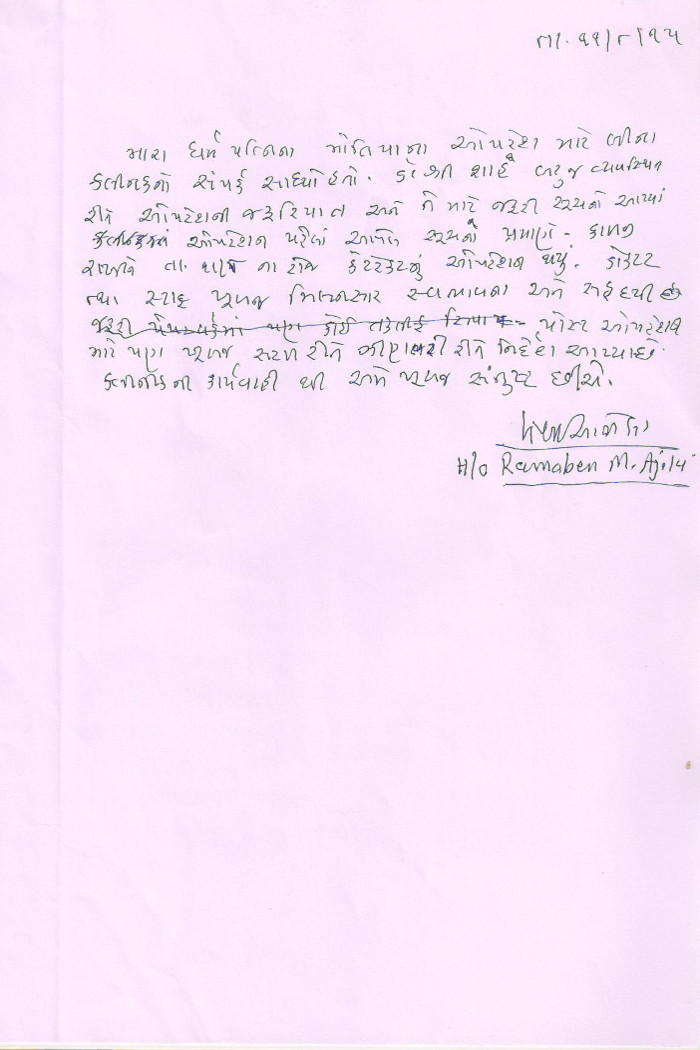 તા. ૧૧/૮/૧૫
મારા ધર્મ પત્નિના મોતિયાના ઓપરેશન માટે
કલીનીકનો સંપર્ક સાધ્યો હતો. ડો શ્રી શાહે બહુજ વ્યવસ્થિત
રીતે ઓપરેશનની જરૂરિયાત અને તે માટે જરૂરી સૂચનો આપ્યાં
ઓપરેશન પહેલાં આપેલ સૂચનો પ્રમાણે
તા. ના રોજ કેટરેકટનું ઓપરેશન થયું. ડોકટર
તથા સ્ટાફ ખૂબજ મિલનસાર સ્વભાવના અને સહૃદયી
જરૂરી પણ કોઈ તકલીફ સિવાય પોસ્ટ ઓપરેશન
માટે પણ ખૂબજ સરળ રીતે રીતે નિર્દેશ આપ્યા છે.
કલીનીકની કાર્યવાહી થી અમે ખૂબજ સંતુષ્ટ છીએ.
H/o Ramaben M.